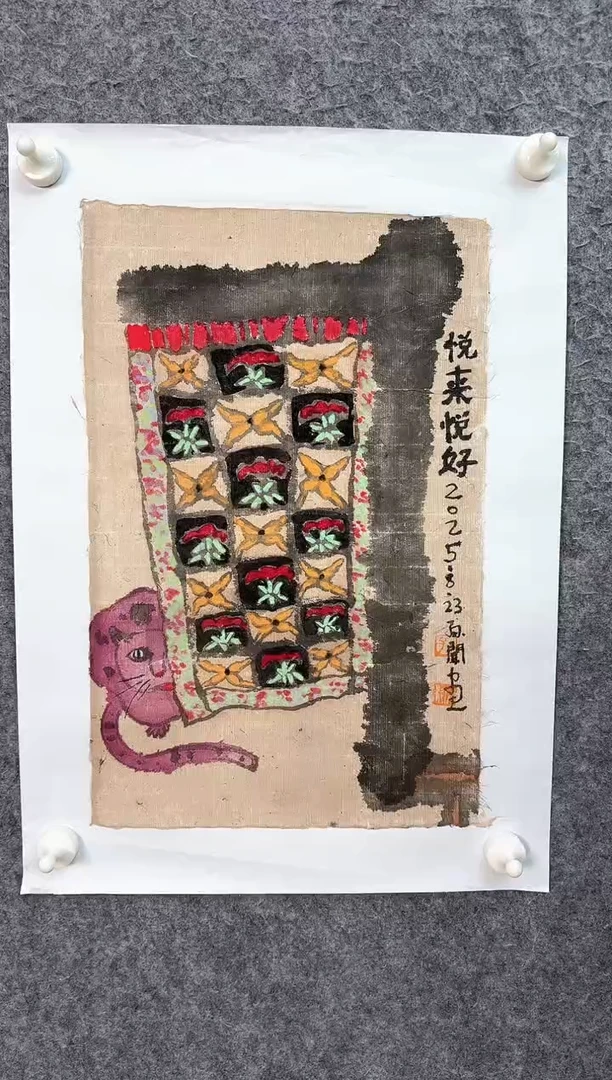 悦来悦好2025·8·23聞画